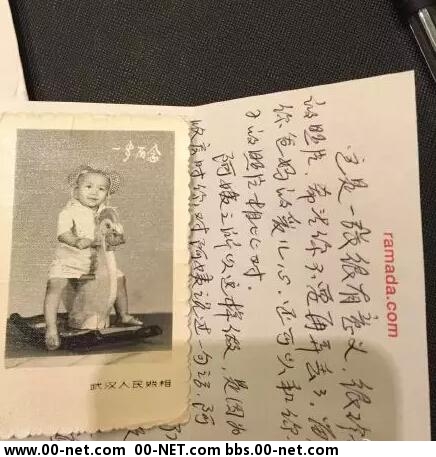 ramada.com
这是一张很有意义、很珍
的照片,希望你不要再弄丢了,留
你爸妈的爱儿心,还可以和你
子的照片相比对.
阿姨之所以这样做,是因为
时你对阿姨说过一句话,阿
一岁留念
武汉人民照相
www.00-net.com 00-NET.com bbs.00-net.com